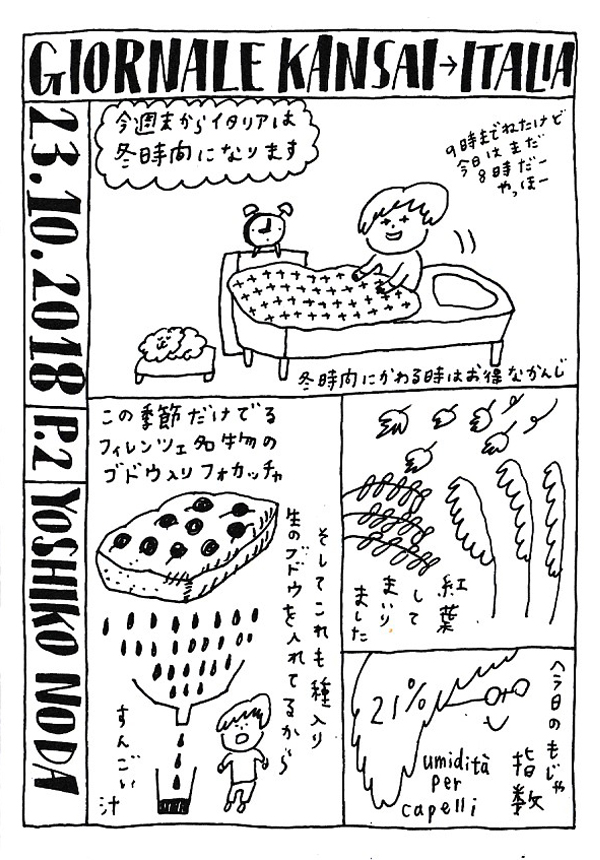 GIORNALE KANSAI→ITALIA
23.10.2018
P.2
YOSHIKO NODA
今週末からイタリアは
冬時間になります
9時までねたけど
今日はまだ
8時だー
やっほー
冬時間にかわる時はお得なかんじ
この季節だけでる
フィレンツェ名物の
ブドウ入りフォカッチャ
そしてこれも種入り
生のブドウを入れてるから
すんごい
汁
紅葉
して
まいり
ました
今日のもじゃ
指数
21%
umidità
per
capelli